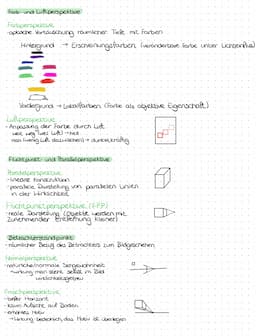 Farb- und Luftperspektive
Farbperspektive
-optische Vortäuschung räumlicher Tiefe mit Farben
Hintergrund → Erscheinungsfarben (veränderbare Farbe unter Lichteinfluss)
Vordergrund → Lokalfarben (Farbe als objektive Eigenschaft)
Luftperspektive
-Anpassung der Farbe durch Luft
weit weg (viel Luft) → hell
nah (wenig Luft dazwischen) → dunkel, kräftig
Fluchtpunkt- und Parallelperspektive
Parallelperspektive
-lineare Konstruktion
-parallele Darstellung von parallelen Linien
in der Wirklichkeit
Fluchtpunktperspektive
-reale Darstellung (Objekte werden mit
zunehmender Entfernung kleiner)
Betrachterstandpunkt
-räumlicher Bezug des Betrachters zum Bildgeschehen
Normalperspektive
-natürliche/normale Sehgewohnheit
→ Wirkung: man steht selbst im Bild
Froschperspektive
-tiefer Horizont
-keine Aufsicht auf Boden
-erhöhtes Motiv
→ Wirkung: bedrohlich, das Motiv ist überlegen